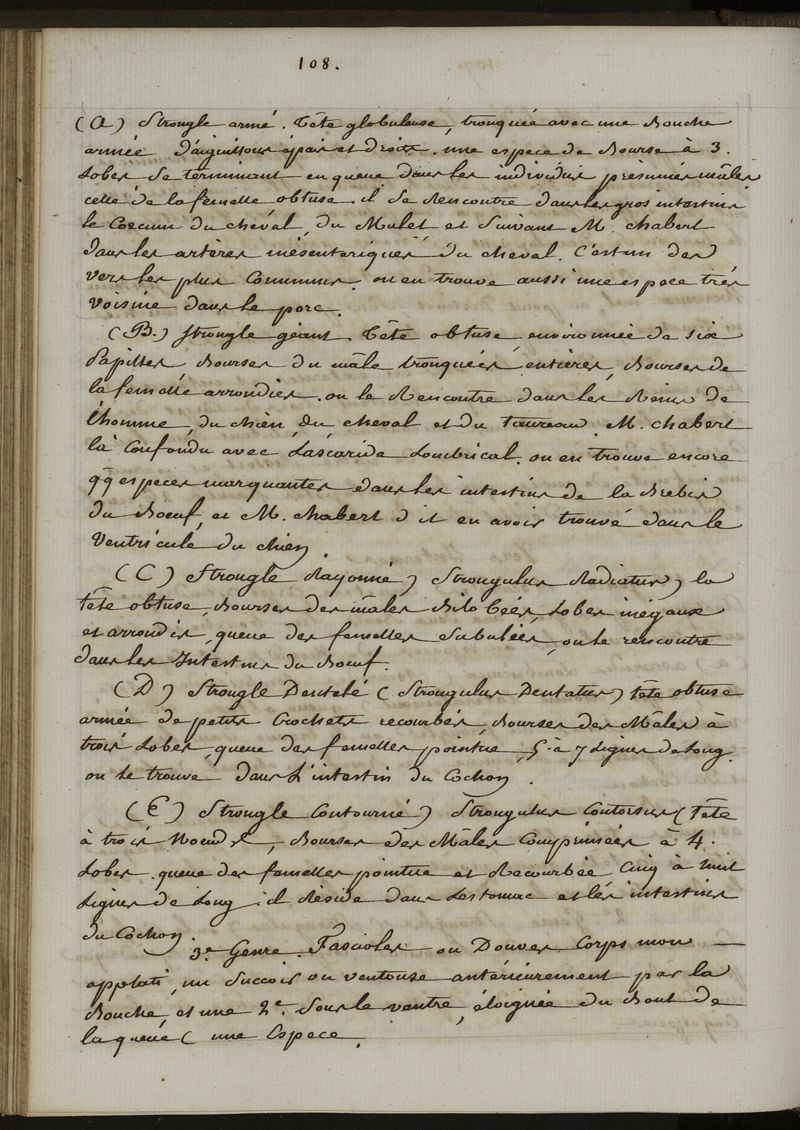 108.
(A) Strongle armé. Tête globuleuse, tronquée avec une Bouche
armée d'aiguillons épais et droits. une espece de Bourse à 3.
Lobes se terminant en queue dans les individus présumés mâles
celle de la femelle obtuse. il se Rencontre dans les gros intestins
le Coecum du cheval, du Mulet, et Suivant M. Chabert
dans les artères mésenteriques du cheval. C'est un des
vers les plus Communs. on en trouve aussi une espece très
voisine dans le porc.
(B.) Strongle géant. Tête obtuse environnée de six
Papilles, Bourses du mâle tronquées, entières, Bourses de
la femelle arrondies. on le Rencontre dans les Reins de
l'homme, du chien, du cheval et du taureau. M. Chabert
l'a Confondu avec Lascaride Lombrical. on en trouve encore
qq especes marquantes dans les intestins de la Brebis
du Boeuf, et M. Chabert dit en avoir trouvé dans le
Ventricule du chien.
(C) Strongle Rayonné, Strongulus Radiatus, la
tête obtuse, Bourses des mâles Bilobées, Lobes inégaux
et arrondis, queue des femelles Subulées, on le rencontre
dans les Intestins du Boeuf.
(D) Strongle Dentelé (Strongulus Dentatus) tête obtuse
armée de petits Crochets recourbés, Bourses des Mâles à
trois Lobes, queue des femelles pointue, 5 à 7 Lignes de Long.
on le trouve dans L'intestin du Cochon.
(E) Strongle Contourné) Strongulus Contorsus (tête
à trois Noeuds, Bourses des Mâles Comprimées à 4.
Lobes. queue des femelles pointue et Recourbée Cinq à huit
Lignes de Long, il Réside dans Lestomac et les intestins
du Cochon.
3e Genre. Fascioles ou Douves Corps mou
applati, un Succoir ou ventouse antérieurement par la
Bouche, et une 2e. Sous le ventre, éloignée du Bout de
la queue (une Espece.